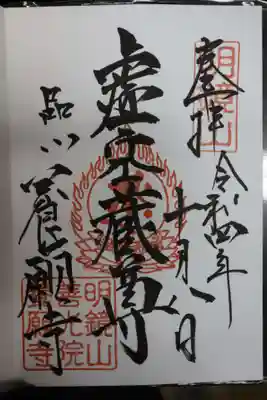 明鏡山
奉拝 令和四年
十月八日
虚空蔵尊
品川 養願寺
明鏡山
善光院
養願寺